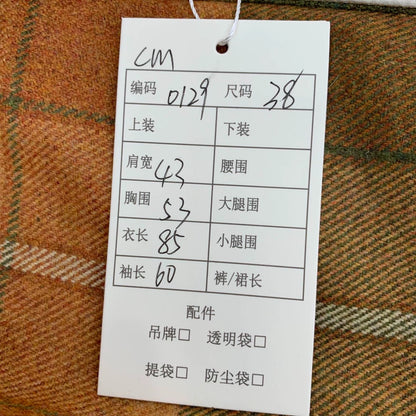 CM
编码 0129 尺码 38
上装 下装
肩宽 43 腰围
胸围 53 大腿围
衣长 85 小腿围
袖长 60 裤/裙长
配件
吊牌□ 透明袋□
提袋□ 防尘袋□